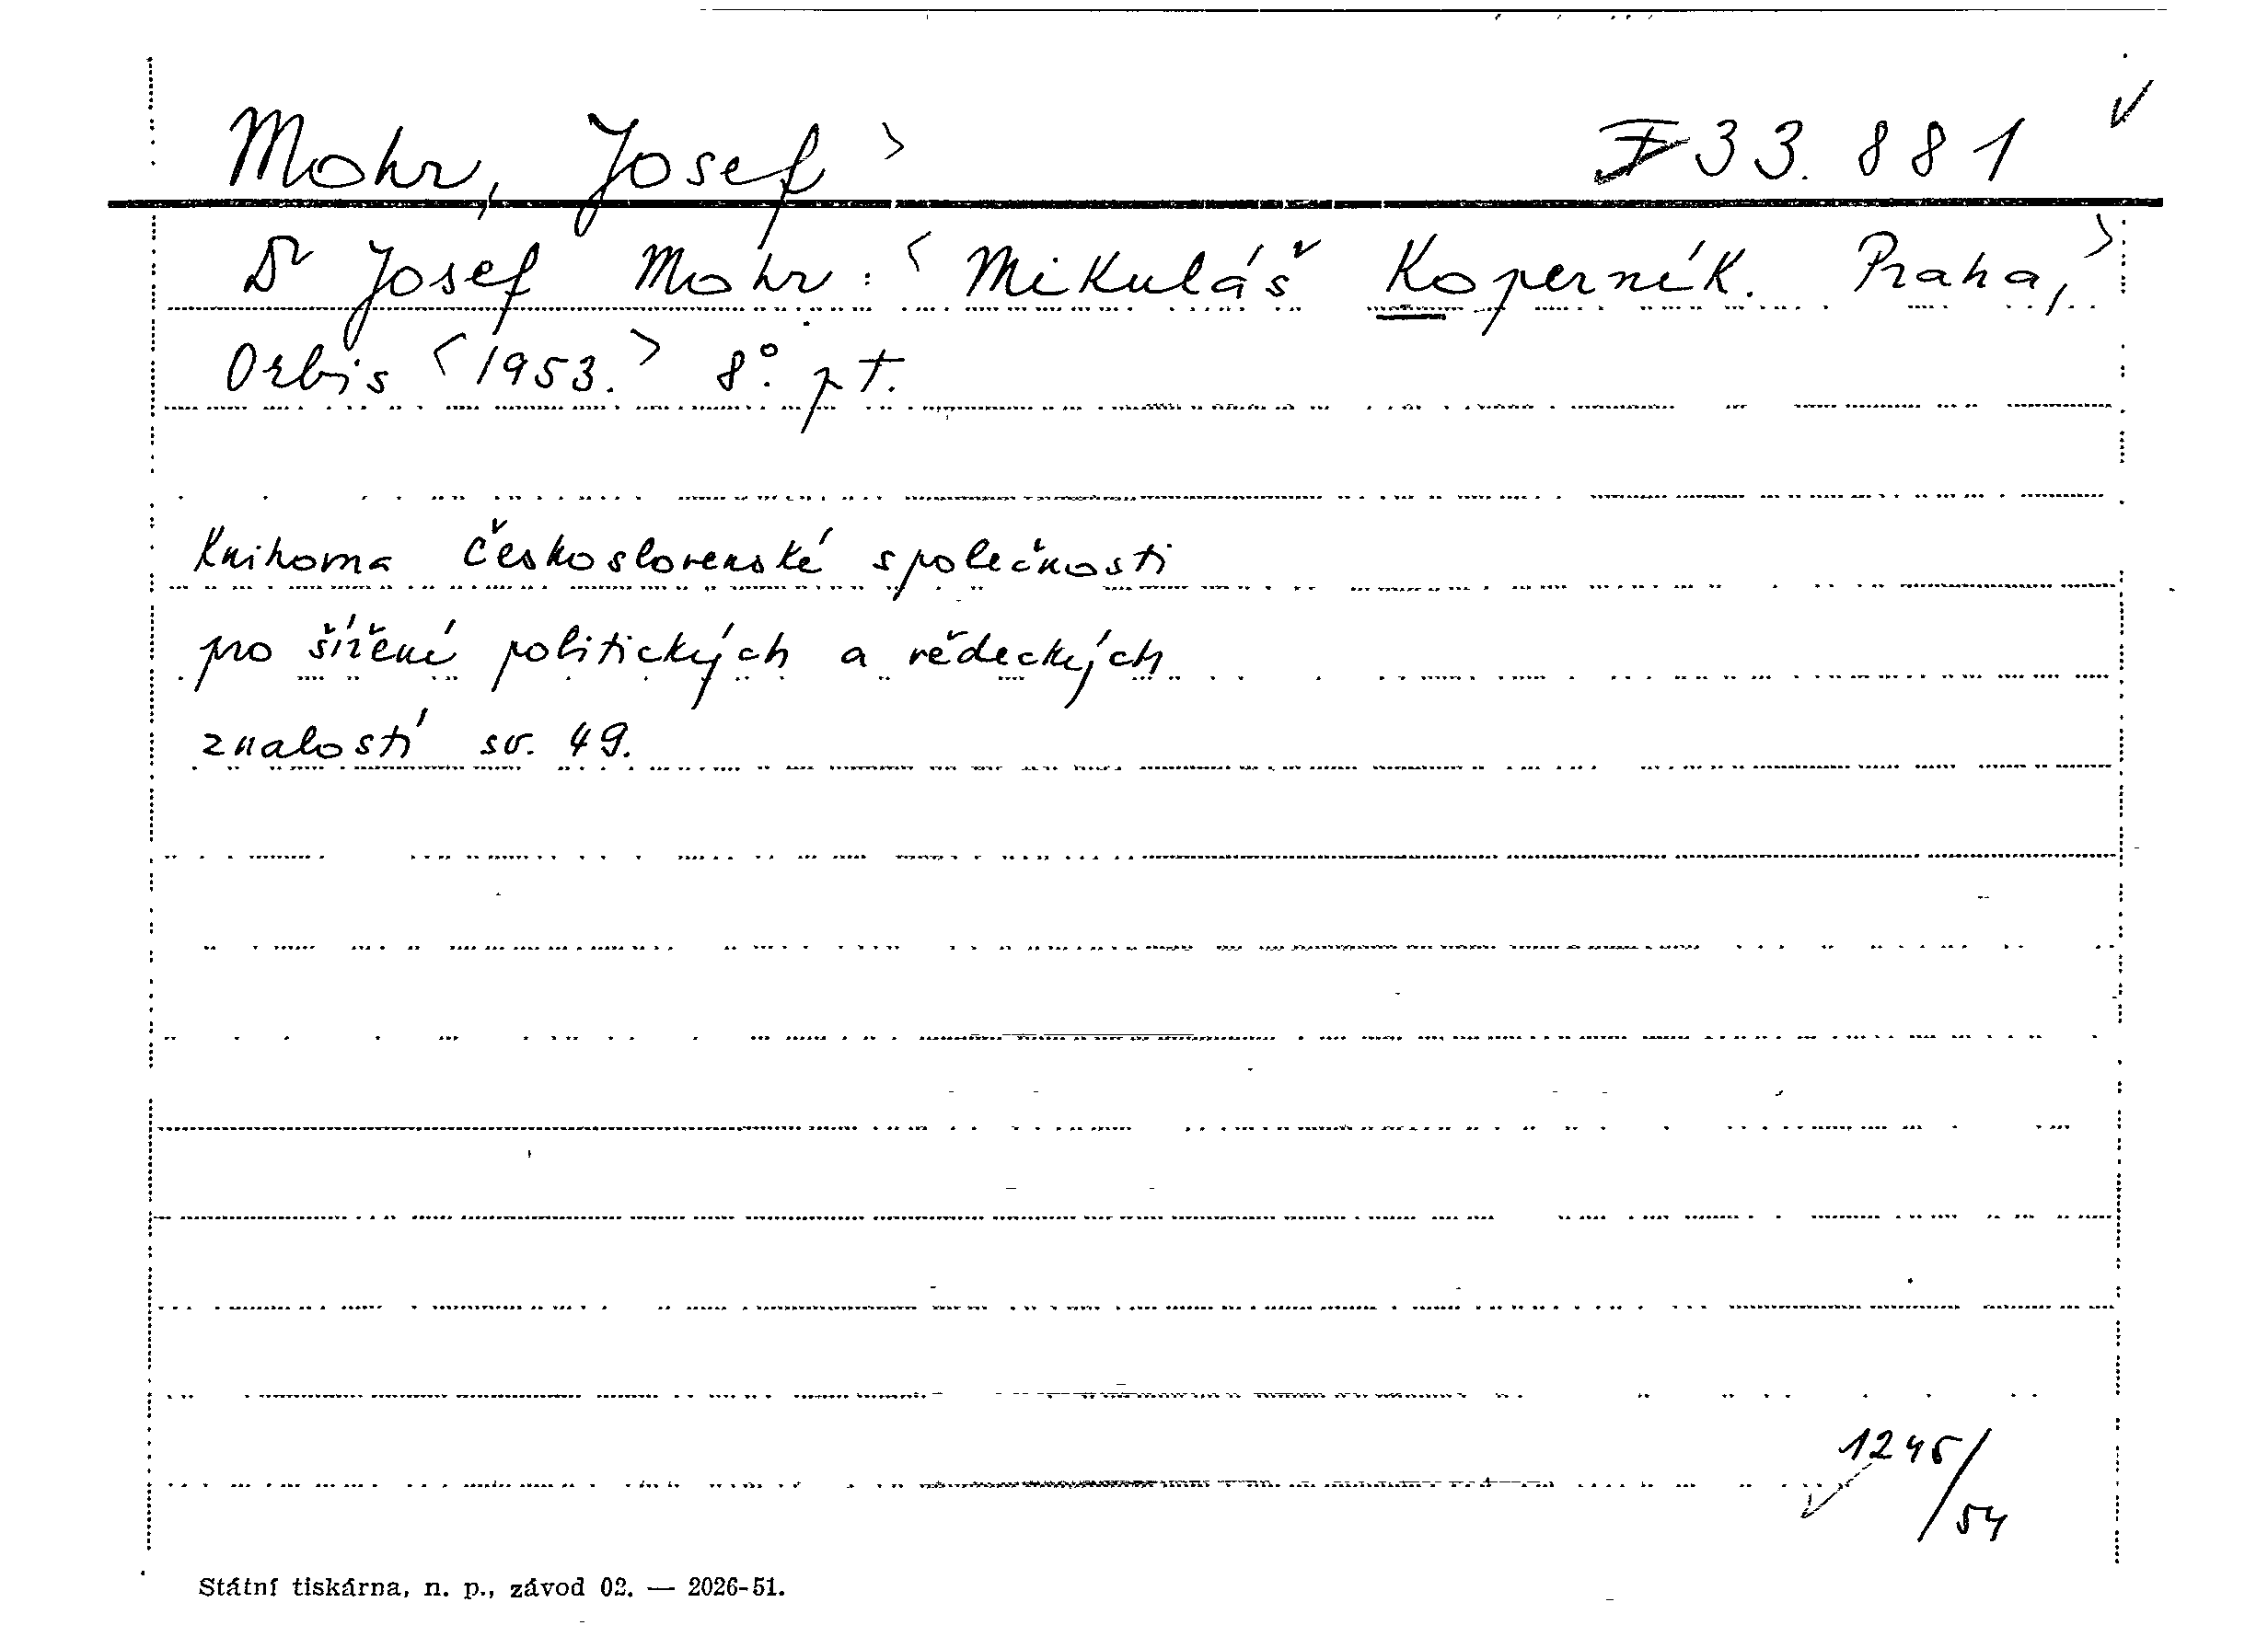 Mohr, Josef > F 33.881 ✓
Dr Josef Mohr: < Mikuláš Koperník. Praha, >
Orbis < 1953. > 8°. pt.
Knihovna Československé společnosti
pro šíření politických a vědeckých
znalostí sv. 49.
1245/54
Státní tiskárna, n. p., závod 02. — 2026-51.